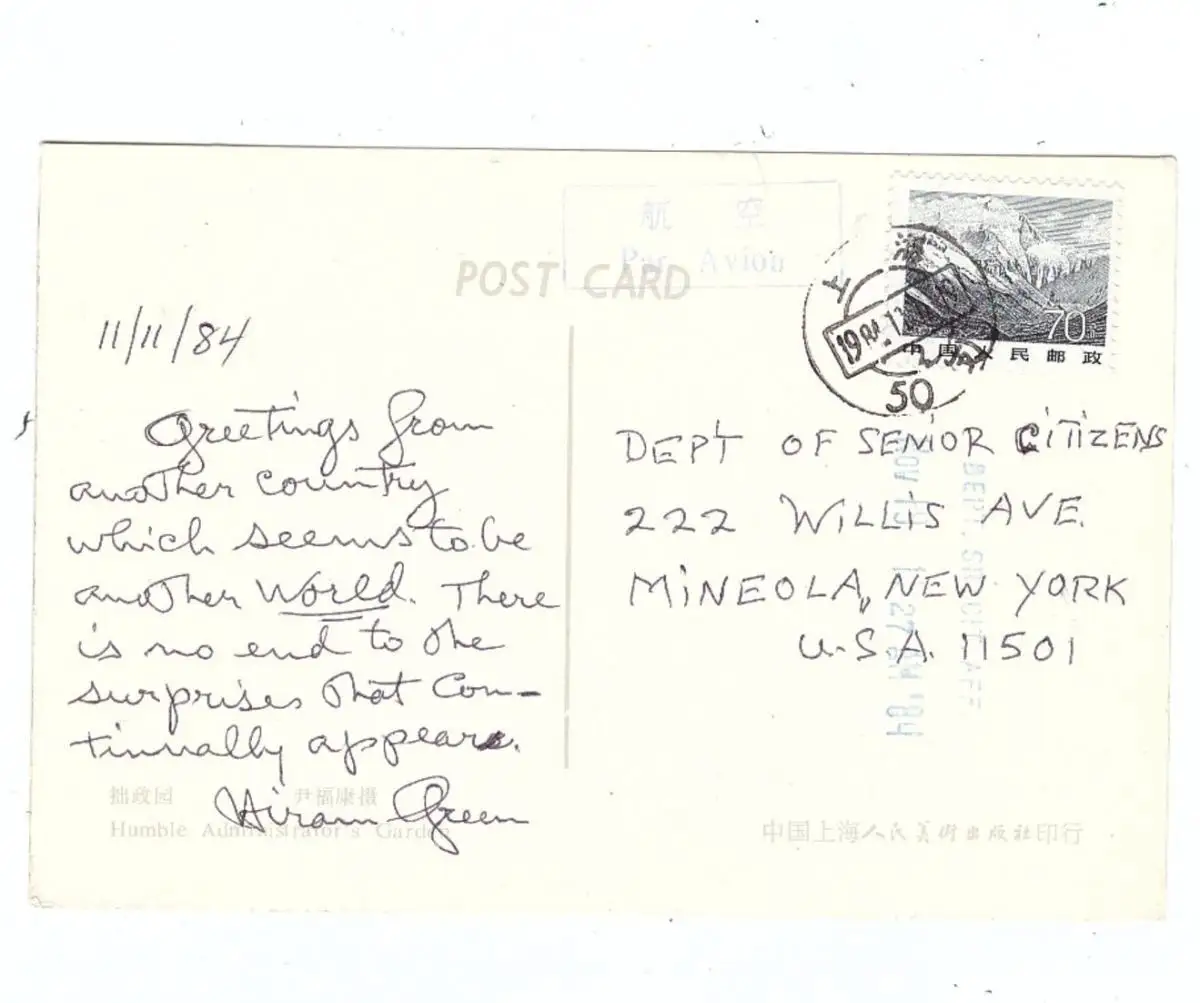 航 空
Par Avion
POST CARD
70分
中国人民邮政
上海
50
11/11/84
Greetings from
another country
which seems to be
another World. There
is no end to the
surprises that con-
tinually appears.
Hiram Green
DEPT OF SENIOR CITIZENS
222 WILLIS AVE.
MINEOLA, NEW YORK
U.S.A. 11501
DEPT. SR. CIT. AFF.
NOV 19 11 27 AM '84
拙政园 尹福康摄
Humble Administrator's Garden
中国上海人民美術出版社印行